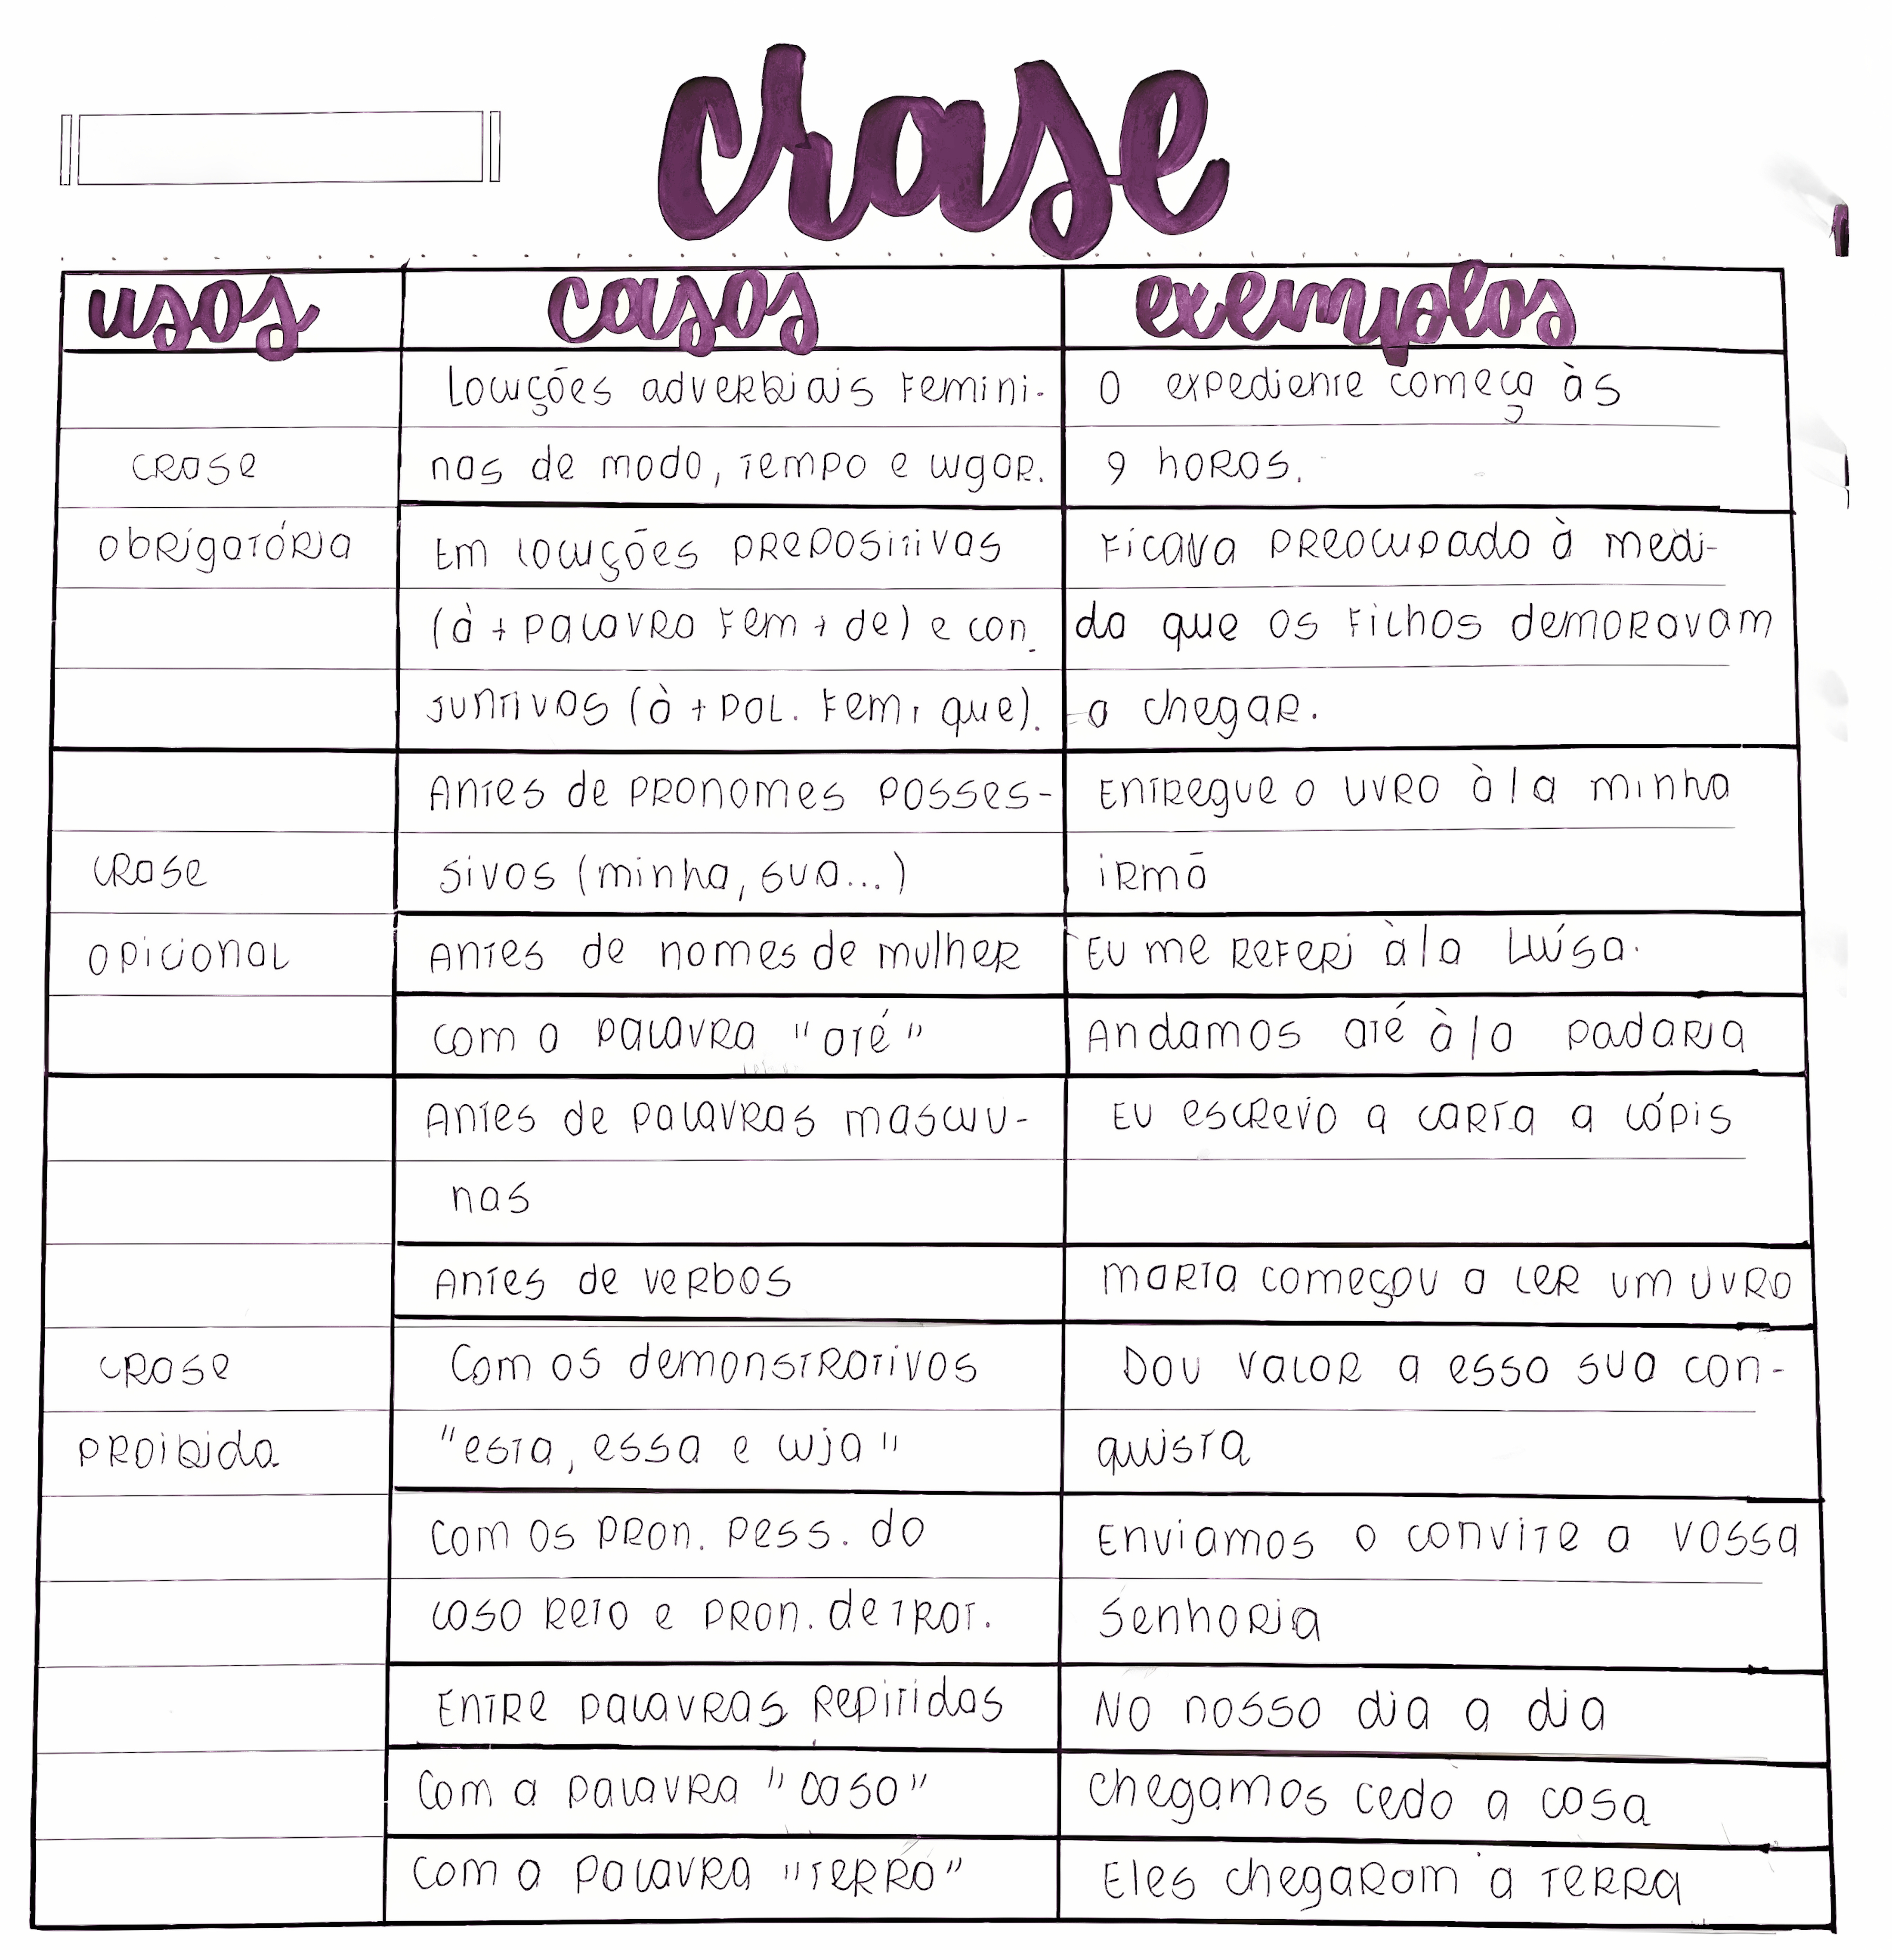 crase
usos casos exemplos
Locuções adverbiais femini- O expediente começa às
crase nas de modo, tempo e lugar. 9 horas.
obrigatória Em locuções prepositivas Ficava preocupado à medi-
(à + palavra fem + de) e con- da que os filhos demoravam
juntivas (à + pal. fem + que). a chegar.
Antes de pronomes posses- Entregue o livro à/a minha
crase sivos (minha, sua...) irmã
opicional Antes de nomes de mulher Eu me referi à/a Luísa.
com a palavra "até" Andamos até à/a padaria
Antes de palavras masculi- Eu escrevo a carta a lápis
nas
Antes de verbos Maria começou a ler um livro
crase Com os demonstrativos Dou valor a essa sua con-
proibida "esta, essa e cuja" quista
Com os pron. pess. do Enviamos o convite a vossa
caso reto e pron. de trat. Senhoria
Entre palavras repitidas No nosso dia a dia
Com a palavra "casa" Chegamos cedo a casa
Com a palavra "terra" Eles chegaram a terra